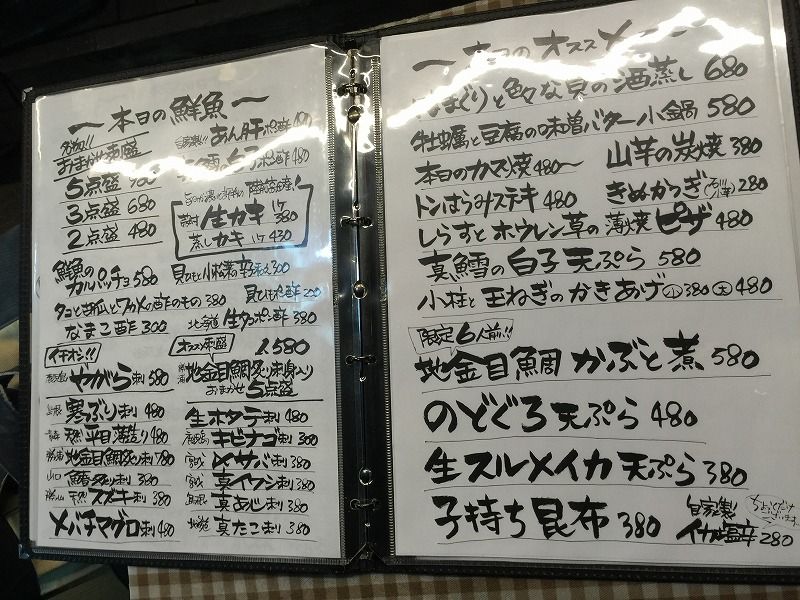 本日の鮮魚
おまかせ刺盛
5点盛 980
3点盛 680
2点盛 480
自家製!! あん肝ポン酢 480
白子ポン酢 480
生カキ 1ケ 380
蒸しカキ 1ケ 430
鮮魚のカルパッチョ 580
貝ひもと小松菜の辛子和え 300
タコと胡瓜とワカメの酢のもの 380
貝ひもポン酢 200
なまこ酢 300
北海道 生タコポン酢 380
イチオシ!!
やがら刺 580
オススメ刺盛 1.580
地金目鯛炙り刺身入り
おまかせ5点盛
島根 寒ぶり刺 480
青森 天然平目薄造り 480
地金目鯛炙り刺 780
山口 鯖炙り刺 380
天然スズキ刺 380
メバチマグロ刺 480
生ホタテ刺 480
キビナゴ刺 300
宮城 〆サバ刺 380
宮城 真イワシ刺 380
島根 真あじ刺 380
北海道 真たこ刺 380
本日のオススメ
はまぐりと色々な貝の酒蒸し 680
牡蠣と豆腐の味噌バター小鍋 580
本日のカマ焼 480〜
山芋の炭焼 380
トンはらみステキ 480
きぬかつぎ(石川小芋) 280
しらすとホウレン草の薄焼ピザ 480
真鱈の白子天ぷら 580
小柱と玉ねぎのかきあげ 小380 大480
限定6人前!!
地金目鯛かぶと煮 580
のどぐろ天ぷら 480
生スルメイカ天ぷら 380
子持ち昆布 380
自家製 イカ塩辛 280